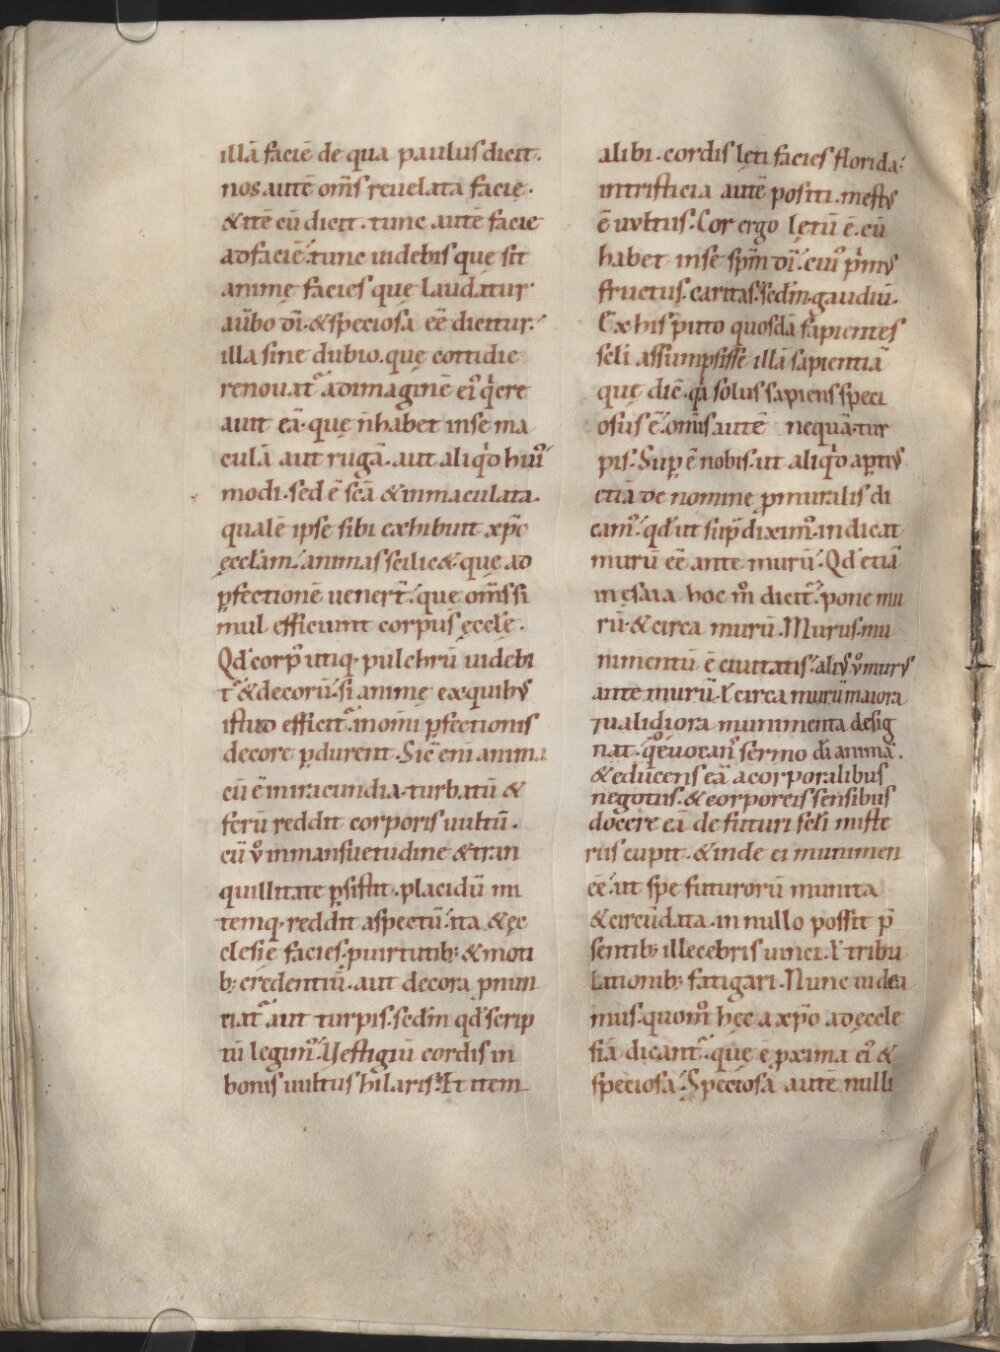 illā faciē de qua paulus dicit.
nos autē om̄s reuelata facie.
& itē cū dicit. tunc autē facie
ad faciē. tunc uidebis que sīt
animę facies quę laudatur
a ūbo dī. & speciosa eē dicitur.
illa sine dubio. quę cottidie
renouat᷑ ad imaginē eiꝰ q̇ ere
auit eā. quę n̄ habet in se ma
culā aut rugā. aut aliq̇d huiꝰ
modi. sed ē scā & inmaculata.
qualē ipse sibi exhibuit xp̄c
ęccłam. animas scilic&. quę ad
ꝑfectionē uener̄t. que om̄s si
mul efficiunt corpus ęcclę.
Qd̄ corpꝰ utiq. pulchrū uidebi
t᷑ & decorū. si animę ex quibꝰ
istud efficit᷑. in om̄i ꝑfectionis
decore ꝑdurent. Sic̄ eni anima
cū ē in iracundia. turbatū &
ferū reddit corporis uultū.
cū v̊ in mansuetudine & tran
quillitate ꝑsistit. placidū mi
temq. reddit aspectū. ita & ęc
clesię facies. ꝓ uirtutib; & moti
b; credentiū. aut decora ꝓnun
tiat᷑ aut turpis. sedm̄ qd̄ scrip
tū legimꝰ. Vestigiū cordis in
bonis uultus hilaris. Et item
alibi. cordis lęti facies florida.
in tristicia autē positi. mestꝰ
ē uultus. Cor ergo lętū ē. cū
habet in se spm̄ dī. cuiꝰ ṗmꝰ
fructus. caritas. sedm̄. gaudiū.
Ex his puto quosdā sapientes
scłi assumpsisse illā sapientiā
quę diē. q̇a solus sapiens speci
osus ē. omīs autē nequā. tur
pis. Suꝑ ē nobis. ut aliq̇d aꝑtiꝰ
etiā de nomine ꝓmuralis di
camꝰ. qd̄ ut sup̄ diximꝰ. indicat
murū eē ante murū. Qd̄ etiā
in ęsaia hoc m̊ dicit᷑. pone mu
rū. & circa murū. Murus. mu
nimentū ē ciuitatis. aliꝰ v̊ murꝰ
ante murū. ł circa murū maiora
⁊ ualidiora munimenta desig
nat. q̊ euocans sermo dī animā.
& educens eā a corporalibus
negotiis. & corporeis sensibus
docere eā de futuri scłi miste
riis cupit. & inde ei munimen
ēē. ut spe futurorū munita
& circūdata. in nullo possit p̄
sentib; illecebris uinci. ł tribu
lationib; fatigari. Nunc uidea
mus. quom̊ hęc a xp̄o ad ęcclę
siā dicant᷑. quę ē ꝓxima eiꝰ &
speciosa. Speciosa autē nulli